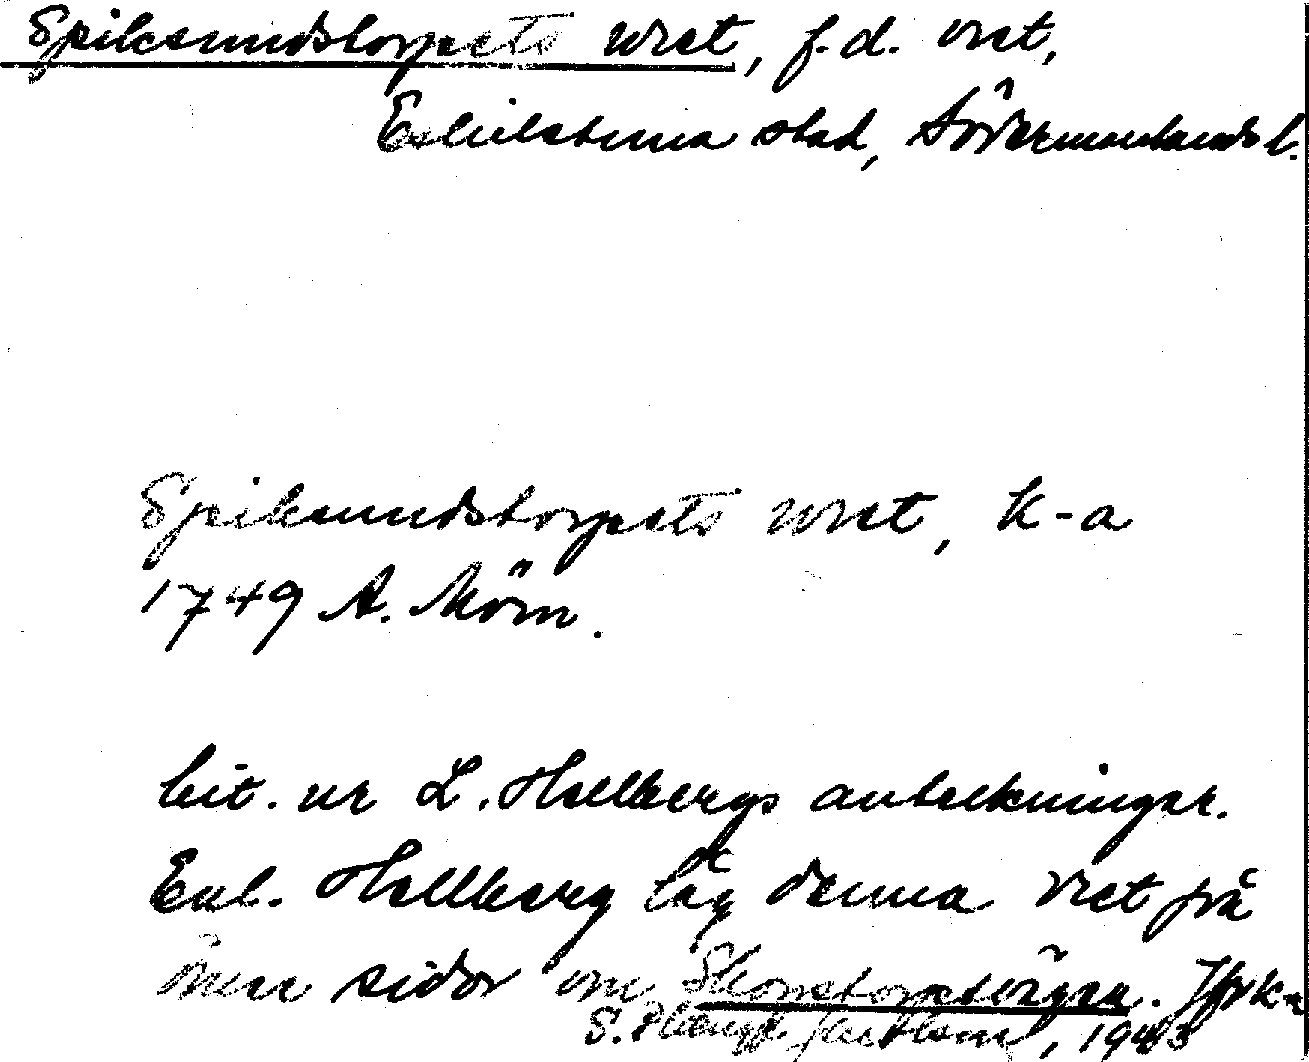 Spiksundstorpets wret, f.d. vret,
Eskilstuna stad, Södermanlands l.
Spiksundstorpets wret, K-a
1749 A. Mörn.
Cit. ur L. Hellbergs anteckningar.
Enl. Hellberg låg denna vret på
ömse sidor om. Jfr k-a
S., 1943